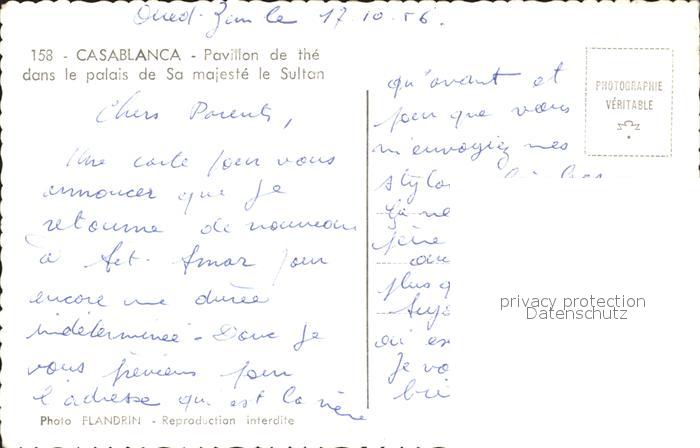 Oued-Zem le 17.10.56.
158 - CASABLANCA - Pavillon de thé
dans le palais de Sa majesté le Sultan
Chers Parents,
Une carte pour vous
annoncer que je
retourne de nouveau
à
pour
encore une durée
indéterminée - Donc je
vous préviens pour
l'adresse qui est la même
Photo FLANDRIN - Reproduction interdite
PHOTOGRAPHIE
VÉRITABLE
qu'avant et
pour que vous
m'envoyiez mes
stylos
Ça ne
plus q
où es
Je vo
privacy protection
Datenschutz